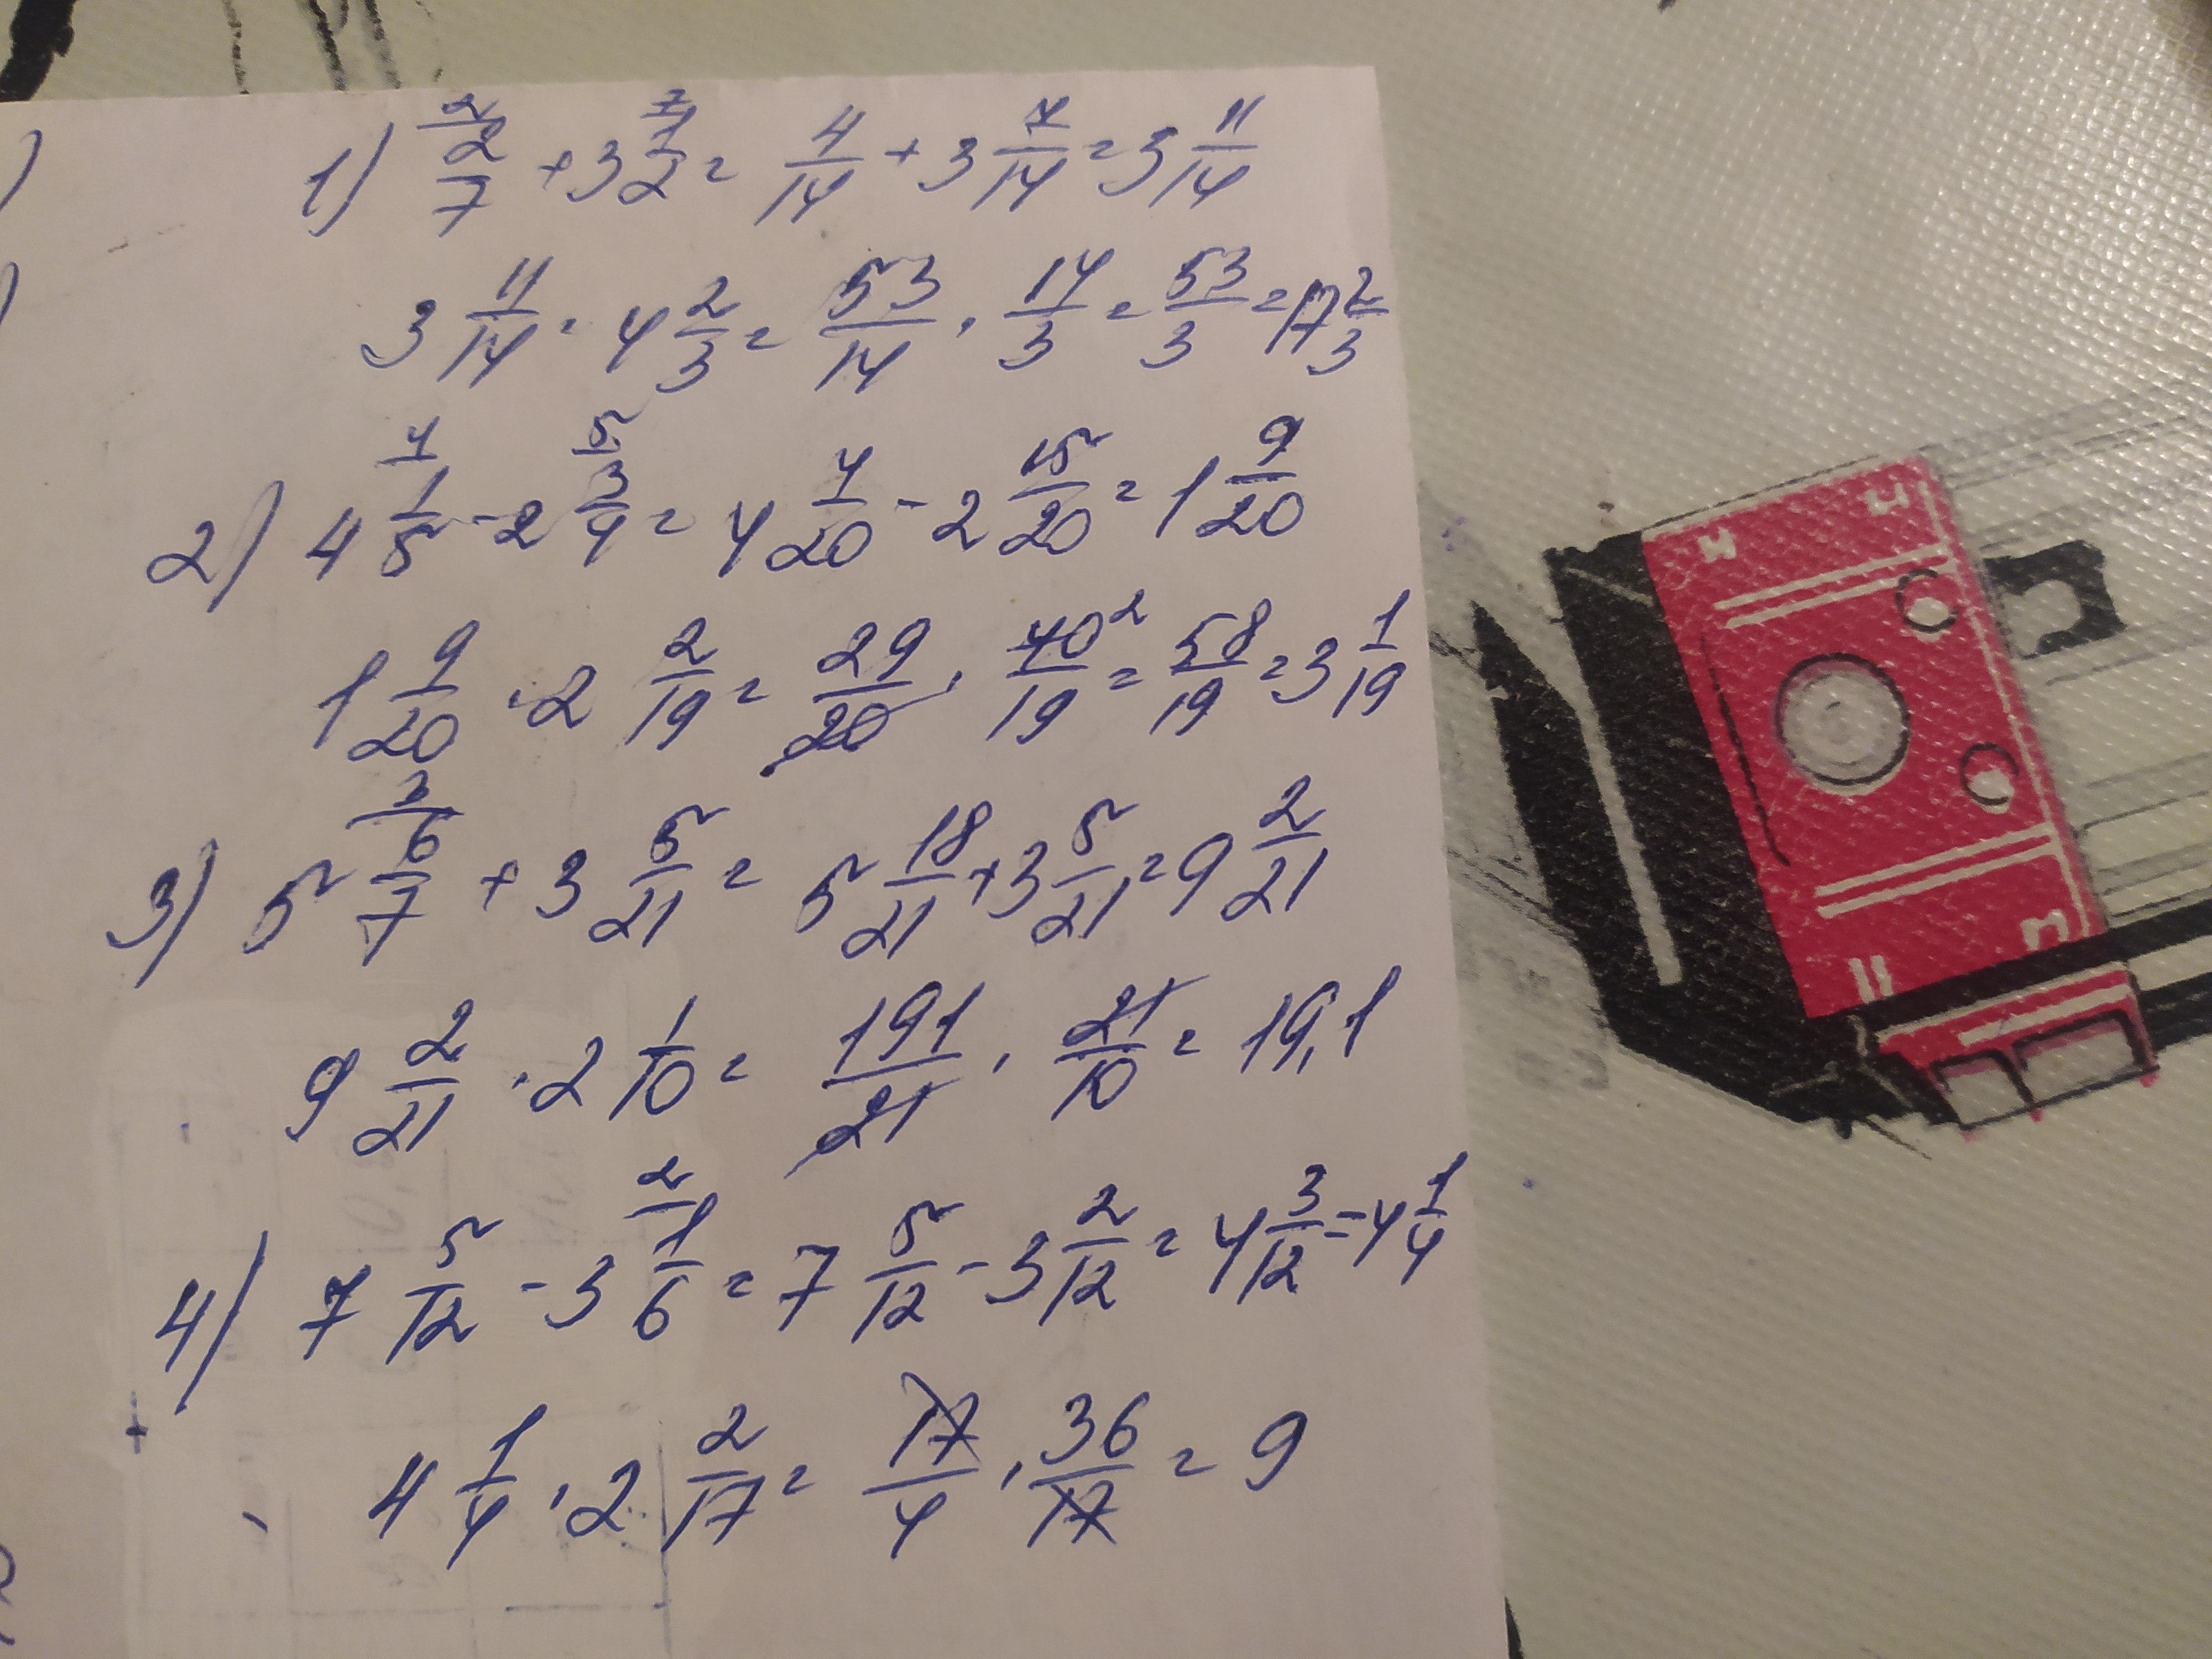 1) 2/7 + 3 1/2 = 4/14 + 3 7/14 = 3 11/14
3 11/14 · 4 2/3 = 53/14 · 14/3 = 53/3 = 17 2/3
2) 4 1/5 - 2 3/4 = 4 4/20 - 2 15/20 = 1 9/20
1 9/20 · 2 2/19 = 29/20 · 40/19 = 58/19 = 3 1/19
3) 5 6/7 + 3 5/21 = 5 18/21 + 3 5/21 = 9 2/21
9 2/21 · 2 1/10 = 191/21 · 21/10 = 19,1
4) 7 5/12 - 3 1/6 = 7 5/12 - 3 2/12 = 4 3/12 = 4 1/4
4 1/4 · 2 2/17 = 17/4 · 36/17 = 9